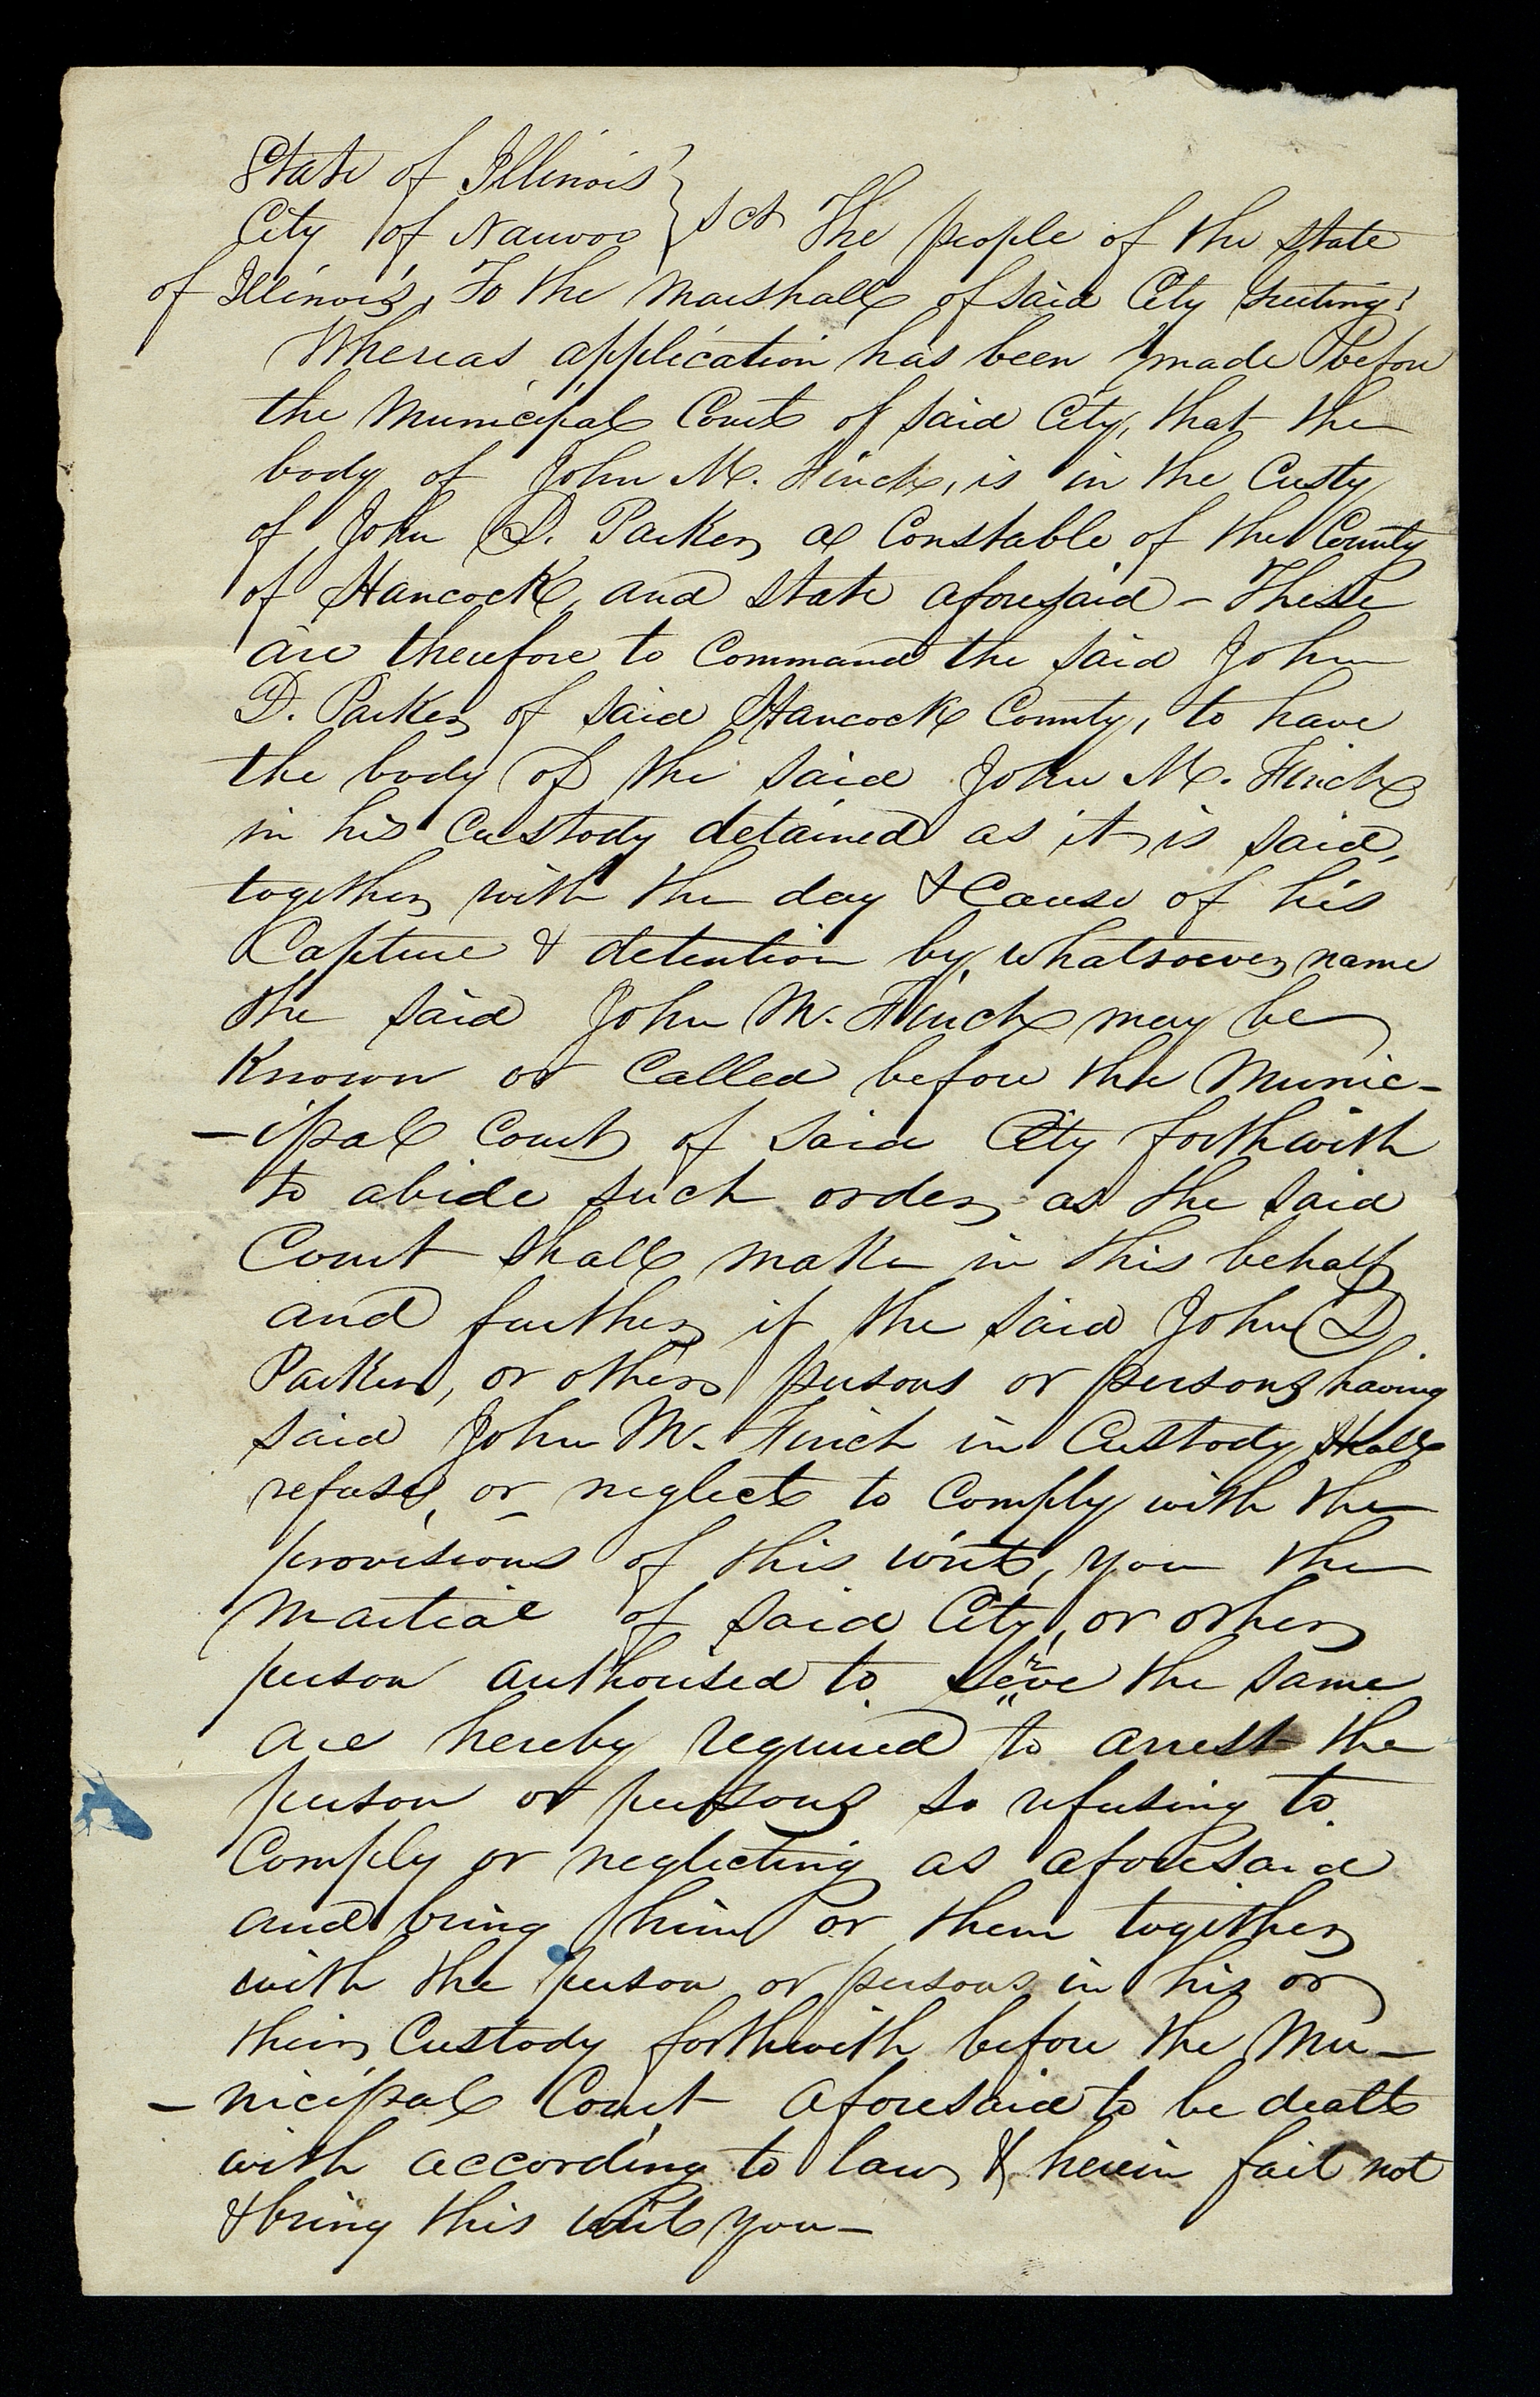 State of Illinois }
City of Nauvoo } sct The people of the state
of Illinois, To the Marshall of said City Greeting:
Whereas application has been made before
the Municipal Court of said City, that the
body of John M. Finch, is in the Custy
of John D. Parker a Constable of the County
of Hancock and state aforesaid - These
are therefore to Command the said John
D. Parker of said Hancock County, to have
the body of the said John M. Finch
in his Custody detained as it is said,
together with the day & Cause of his
Capture & detention by whatsoever name
the said John M. Finch may be
Known or Called before the Munic-
-ipal Court of said City forthwith
to abide such order as the said
Court shall make in this behalf
and further if the said John D
Parker, or other persons or persons having
said John M. Finch in Custody shall
refuse, or neglect to Comply with the
provisions of this writ, you the
Martial of said City, or other
person authorised to serve the same
are hereby required to arrest the
person or persons so refusing to
Comply or neglecting as aforesaid
and bring him or them together
with the person or persons in his or
their Custody forthwith before the Mu-
-nicipal Court aforesaid to be dealt
with according to law, & herein fail not
& bring this writ you-